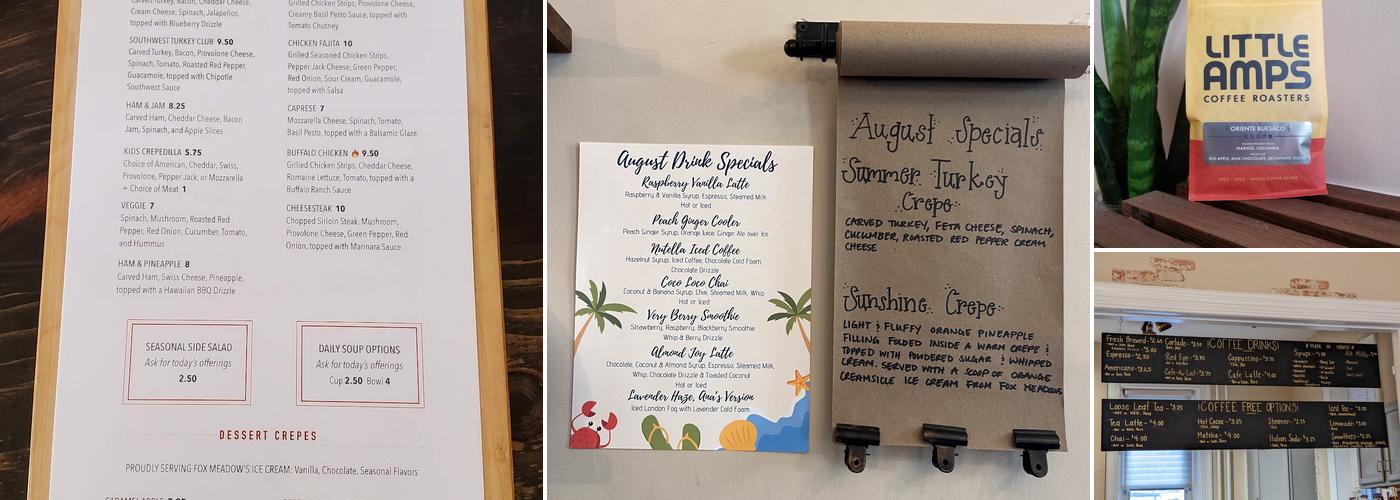 Carved Turkey, Bacon, Cheddar Cheese,
Cream Cheese, Spinach, Jalapeños,
topped with Blueberry Drizzle
SOUTHWEST TURKEY CLUB 9.50
Carved Turkey, Bacon, Provolone Cheese,
Spinach, Tomato, Roasted Red Pepper,
Guacamole, topped with Chipotle
Southwest Sauce
HAM & JAM 8.25
Carved Ham, Cheddar Cheese, Bacon
Jam, Spinach, and Apple Slices
KIDS CREPEDILLA 5.75
Choice of American, Cheddar, Swiss,
Provolone, Pepper Jack, or Mozzarella
+ Choice of Meat 1
VEGGIE 7
Spinach, Mushroom, Roasted Red
Pepper, Red Onion, Cucumber, Tomato,
and Hummus
HAM & PINEAPPLE 8
Carved Ham, Swiss Cheese, Pineapple,
topped with a Hawaiian BBQ Drizzle
Grilled Chicken Strips, Provolone Cheese,
Creamy Basil Pesto Sauce, topped with
Tomato Chutney
CHICKEN FAJITA 10
Grilled Seasoned Chicken Strips,
Pepper Jack Cheese, Green Pepper,
Red Onion, Sour Cream, Guacamole,
topped with Salsa
CAPRESE 7
Mozzarella Cheese, Spinach, Tomato,
Basil Pesto, topped with a Balsamic Glaze
BUFFALO CHICKEN 🔥 9.50
Grilled Chicken Strips, Cheddar Cheese,
Romaine Lettuce, Tomato, topped with a
Buffalo Ranch Sauce
CHEESESTEAK 10
Chopped Sirloin Steak, Mushroom,
Provolone Cheese, Green Pepper, Red
Onion, topped with Marinara Sauce
SEASONAL SIDE SALAD
Ask for today's offerings
2.50
DAILY SOUP OPTIONS
Ask for today's offerings
Cup 2.50 Bowl 4
DESSERT CREPES
PROUDLY SERVING FOX MEADOW'S ICE CREAM: Vanilla, Chocolate, Seasonal Flavors
August Drink Specials
Raspberry Vanilla Latte
Raspberry & Vanilla Syrup, Espresso, Steamed Milk
Hot or Iced
Peach Ginger Cooler
Peach Ginger Syrup, Orange Juice, Ginger Ale over Ice
Nutella Iced Coffee
Hazelnut Syrup, Iced Coffee, Chocolate Cold Foam,
Chocolate Drizzle
Coco Loco Chai
Coconut & Banana Syrup, Chai, Steamed Milk, Whip
Hot or Iced
Very Berry Smoothie
Strawberry, Raspberry, Blackberry Smoothie
Whip & Berry Drizzle
Almond Joy Latte
Chocolate, Coconut & Almond Syrup, Espresso, Steamed Milk,
Whip, Chocolate Drizzle & Toasted Coconut
Hot or Iced
Lavender Haze, Ana's Version
Iced London Fog with Lavender Cold Foam
August Specials
Summer Turkey
Crepe
CARVED TURKEY, FETA CHEESE, SPINACH,
CUCUMBER, ROASTED RED PEPPER CREAM
CHEESE
Sunshine Crepe
LIGHT & FLUFFY ORANGE PINEAPPLE
FILLING FOLDED INSIDE A WARM CREPE &
TOPPED WITH POWDERED SUGAR & WHIPPED
CREAM. SERVED WITH A SCOOP OF ORANGE
CREAMSICLE ICE CREAM FROM FOX MEADOWS
LITTLE
AMPS
COFFEE ROASTERS
ORIENTE BUESACO
NARIÑO, COLOMBIA
RED APPLE, MILK CHOCOLATE, BROWN SUGAR
¡COFFEE DRINKS!
Fresh Brewed
Espresso
Americano
Cortado
Red Eye
Cafe-Au-Lait
Cappuccino
Cafe Latte
Syrups
¡COFFEE FREE OPTIONS!
Loose Leaf Tea
Tea Latte
Chai
Hot Cocoa
Matcha
Steamer
Italian Soda
Iced Tea
Lemonade
Smoothies